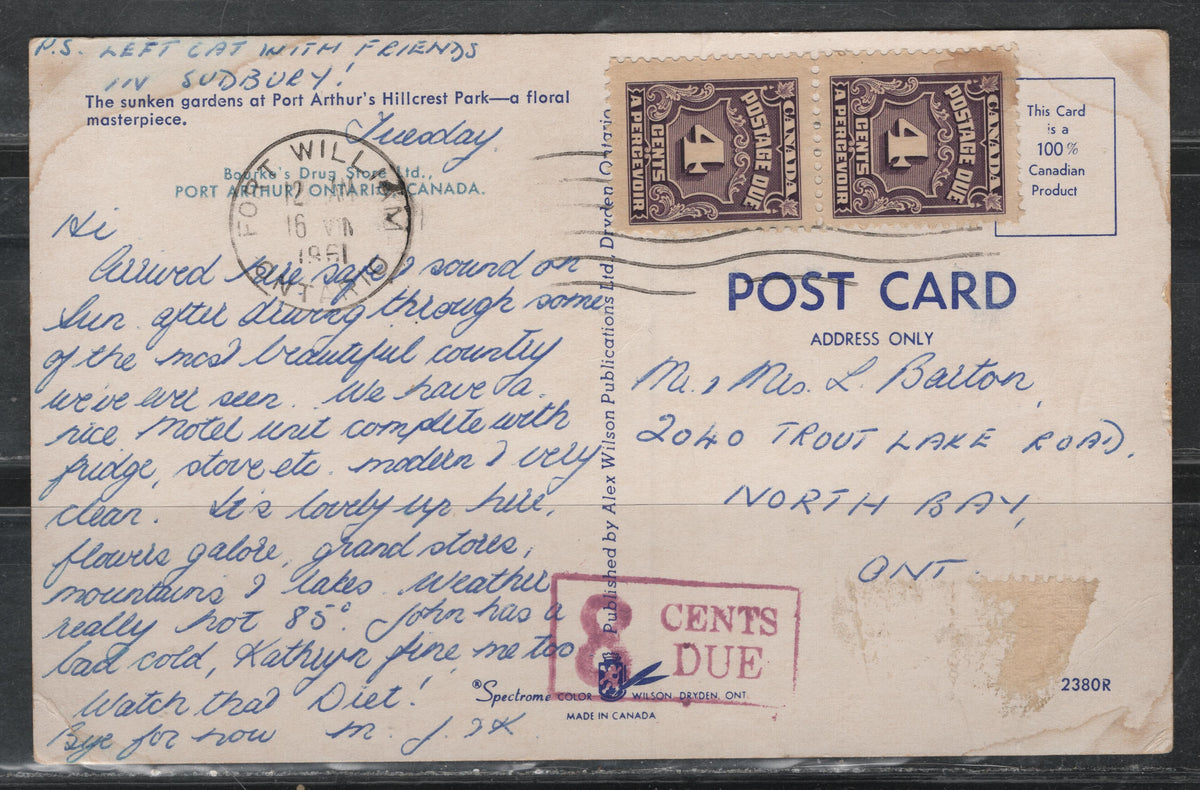 P.S. LEFT CAT WITH FRIENDS
IN SUDBURY!
The sunken gardens at Port Arthur's Hillcrest Park—a floral
masterpiece.
Tuesday.
Bourke's Drug Store Ltd.,
PORT ARTHUR, ONTARIO, CANADA.
FORT WILLIAM
12
16 VIII
1961
ONTARIO
Hi
Arrived here safe & sound on
Sun. after driving through some
of the most beautiful country
we've ever seen. We have a
nice Motel unit complete with
fridge, stove etc. modern & very
clean. It's lovely up here,
flowers galore, grand stores,
mountains & lakes. Weather
really hot 85° John has a
bad cold, Kathryn fine me too.
Watch that Diet!
Bye for now M. J. & K
Published by Alex Wilson Publications Ltd., Dryden, Ontario
CANADA
POSTAGE DUE
4
CENTS
A PERCEVOIR
CANADA
POSTAGE DUE
4
CENTS
A PERCEVOIR
This Card
is a
100%
Canadian
Product
POST CARD
ADDRESS ONLY
Mr. & Mrs. L. Barton,
2040 TROUT LAKE ROAD,
NORTH BAY,
ONT.
8 CENTS
DUE
®Spectrome COLOR WILSON, DRYDEN, ONT.
MADE IN CANADA
2380R